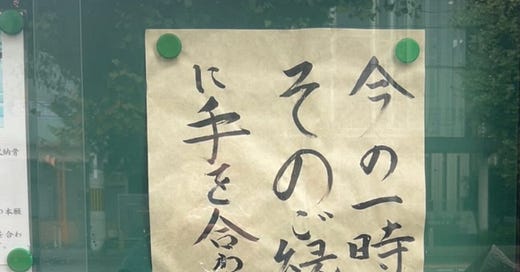 今の一時
そのご縁
に手を合わ
納骨
の本願
を合わ